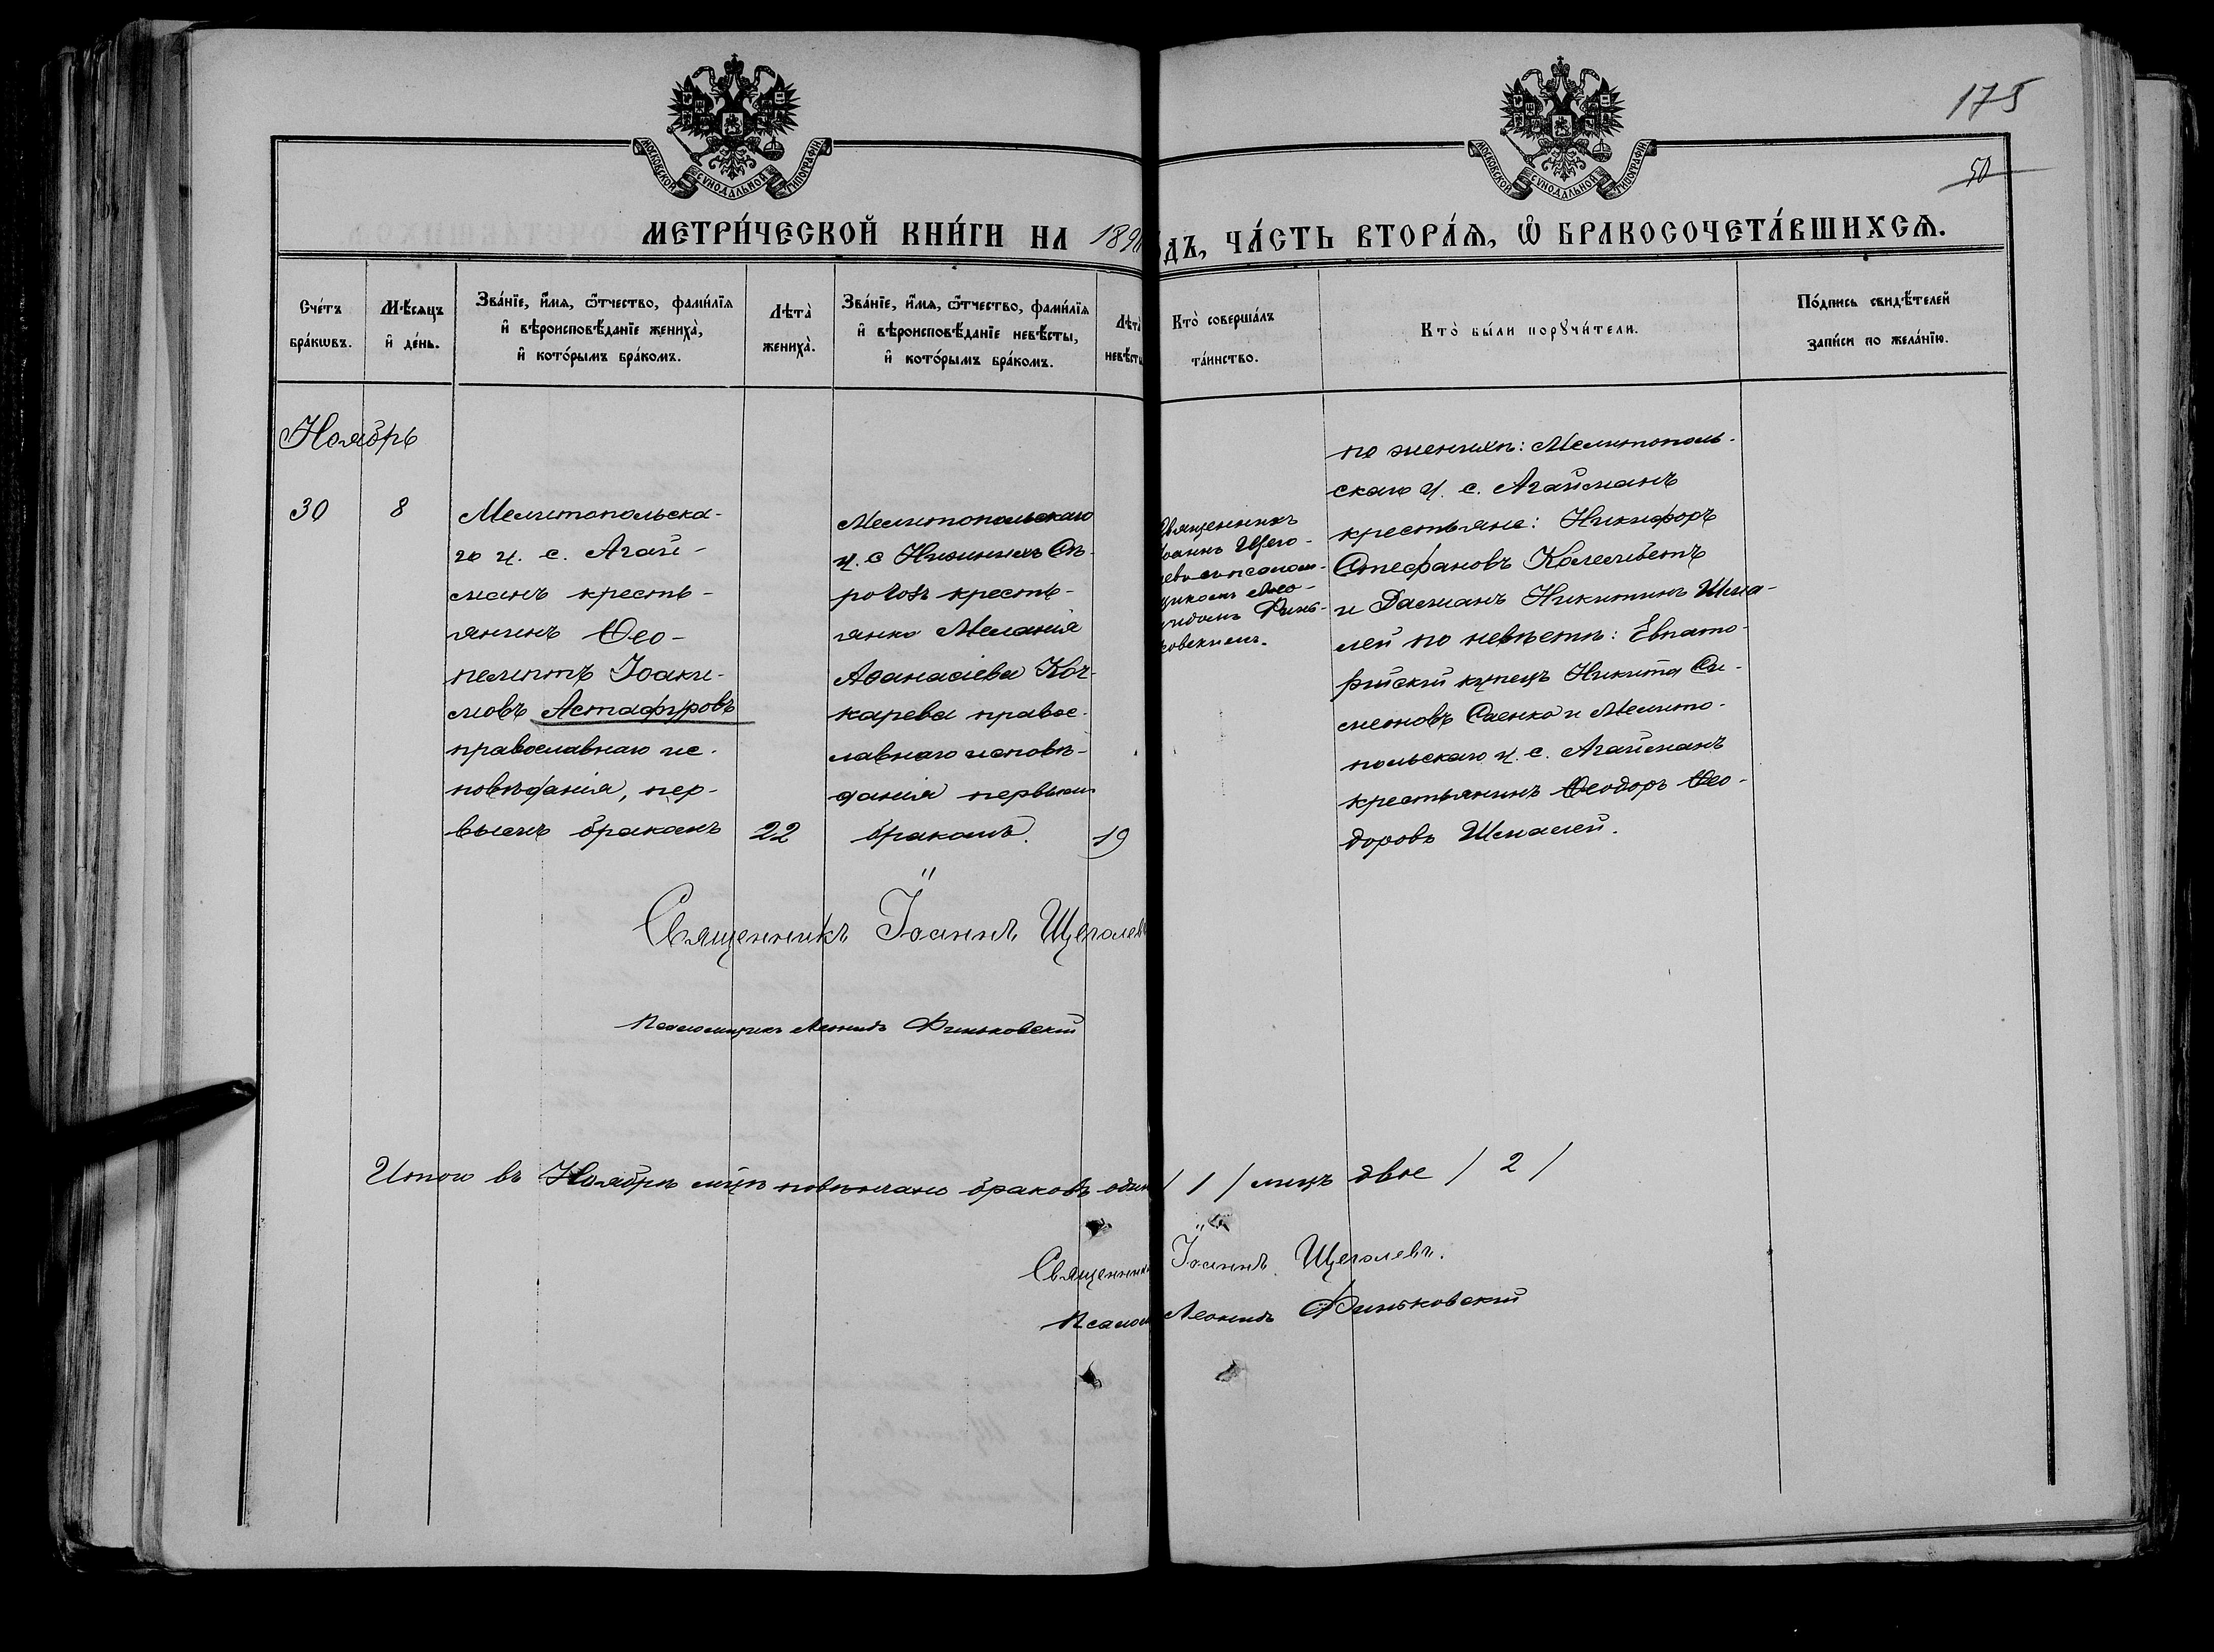 175
50
МОСКОВСКОЙ СѴНОДАЛЬНОЙ ТИПОГРАФІИ
МОСКОВСКОЙ СѴНОДАЛЬНОЙ ТИПОГРАФІИ
МЕТРИ́ЧЕСКОЙ КНИ́ГИ НА 189
ДЪ, ЧА́СТЬ ВТОРА́Ѧ, Ѡ҆ БРАКОСОЧЕТА́ВШИХСѦ.
Сче́тъ
бра́кѡвъ.
Мѣ́сяцъ
и҆ де́нь.
Зва́нїе, и҆́мѧ, ѻ҆́тчество, фами́лїѧ
и҆ вѣроисповѣ́данїе жениха̀,
и҆ кото́рымъ бра́комъ.
Лѣта̀
жениха̀.
Зва́нїе, и҆́мѧ, ѻ҆́тчество, фами́лїѧ
и҆ вѣроисповѣ́данїе невѣ́сты,
и҆ кото́рымъ бра́комъ.
Лѣта̀
невѣ́сты
Кто̀ соверша́лъ
та́инство.
Кто̀ бы́ли порꙋчи́тели.
По́дпись свидѣ́телей
за́писи по жела́нїю.
Ноябрь
30
8
Мелитопольска-
го у. с. Агай-
манъ кресть-
янинъ Ѳео-
пемптъ Іоаки-
мовъ Астафуровъ
православнаго ис-
повѣданія, пер-
вымъ бракомъ
22
Мелитопольскаго
у. с Нижнихъ Сѣ-
рогозъ кресть-
янка Меланія
Аѳанасіева Коч-
карева правос-
лавнаго исповѣ-
данія первымъ
бракомъ.
19
Священникъ
Іоаннъ Щего-
левъ съ псалом-
щикомъ Лео-
нидомъ Финь-
ковскимъ.
по женихѣ: Мелитополь-
скаго у. с. Агайманъ
крестьяне: Никифоръ
Стефановъ Колембетъ
и Даміанъ Никитинъ Шма-
лей по невѣстѣ: Евпато-
рійскій купецъ Никита Си-
меоновъ Саенко и Мелито-
польскаго у. с. Агайманъ
крестьянинъ Ѳеодоръ Ѳео-
доровъ Шмалей.
Священникъ Іоаннъ Щеголевъ
Псаломщикъ Леонидъ Финьковскій
Итого въ Ноябрѣ мцѣ повѣнчано браковъ один / 1 / лицъ двое / 2 /
Священникъ Іоаннъ Щеголевъ.
Псалом Леонидъ Финьковскій